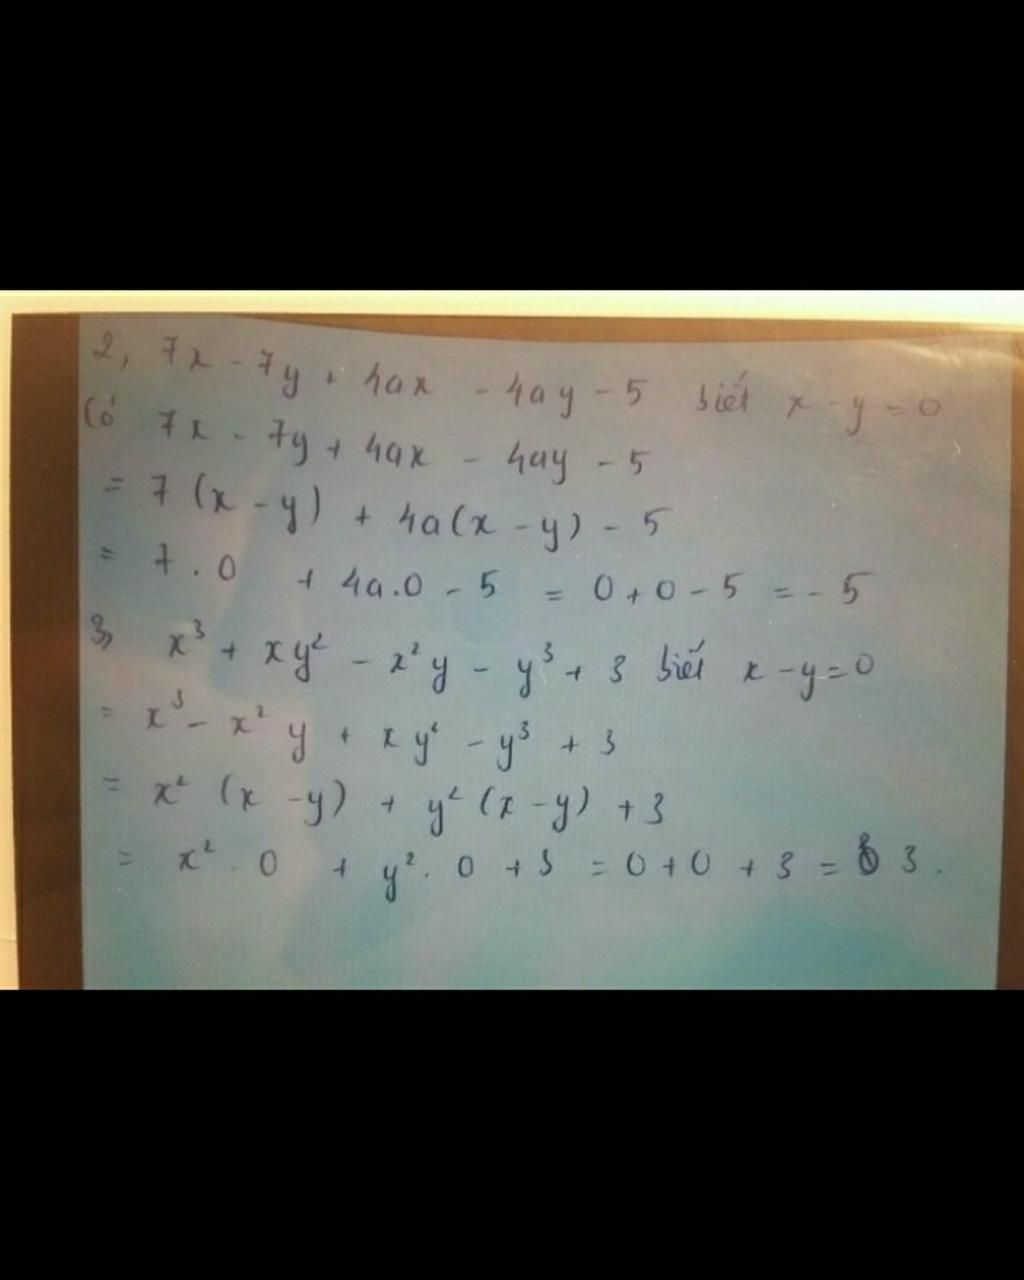 2, 7x - 7y + 4ax - 4ay - 5 biết x - y = 0
Có 7x - 7y + 4ax - 4ay - 5
= 7 (x - y) + 4a(x - y) - 5
= 7 . 0 + 4a.0 - 5 = 0 + 0 - 5 = - 5
3, x³ + xy² - x²y - y³ + 3 biết x - y = 0
= x³ - x²y + xy² - y³ + 3
= x² (x - y) + y² (x - y) + 3
= x² . 0 + y² . 0 + 3 = 0 + 0 + 3 = 3 .